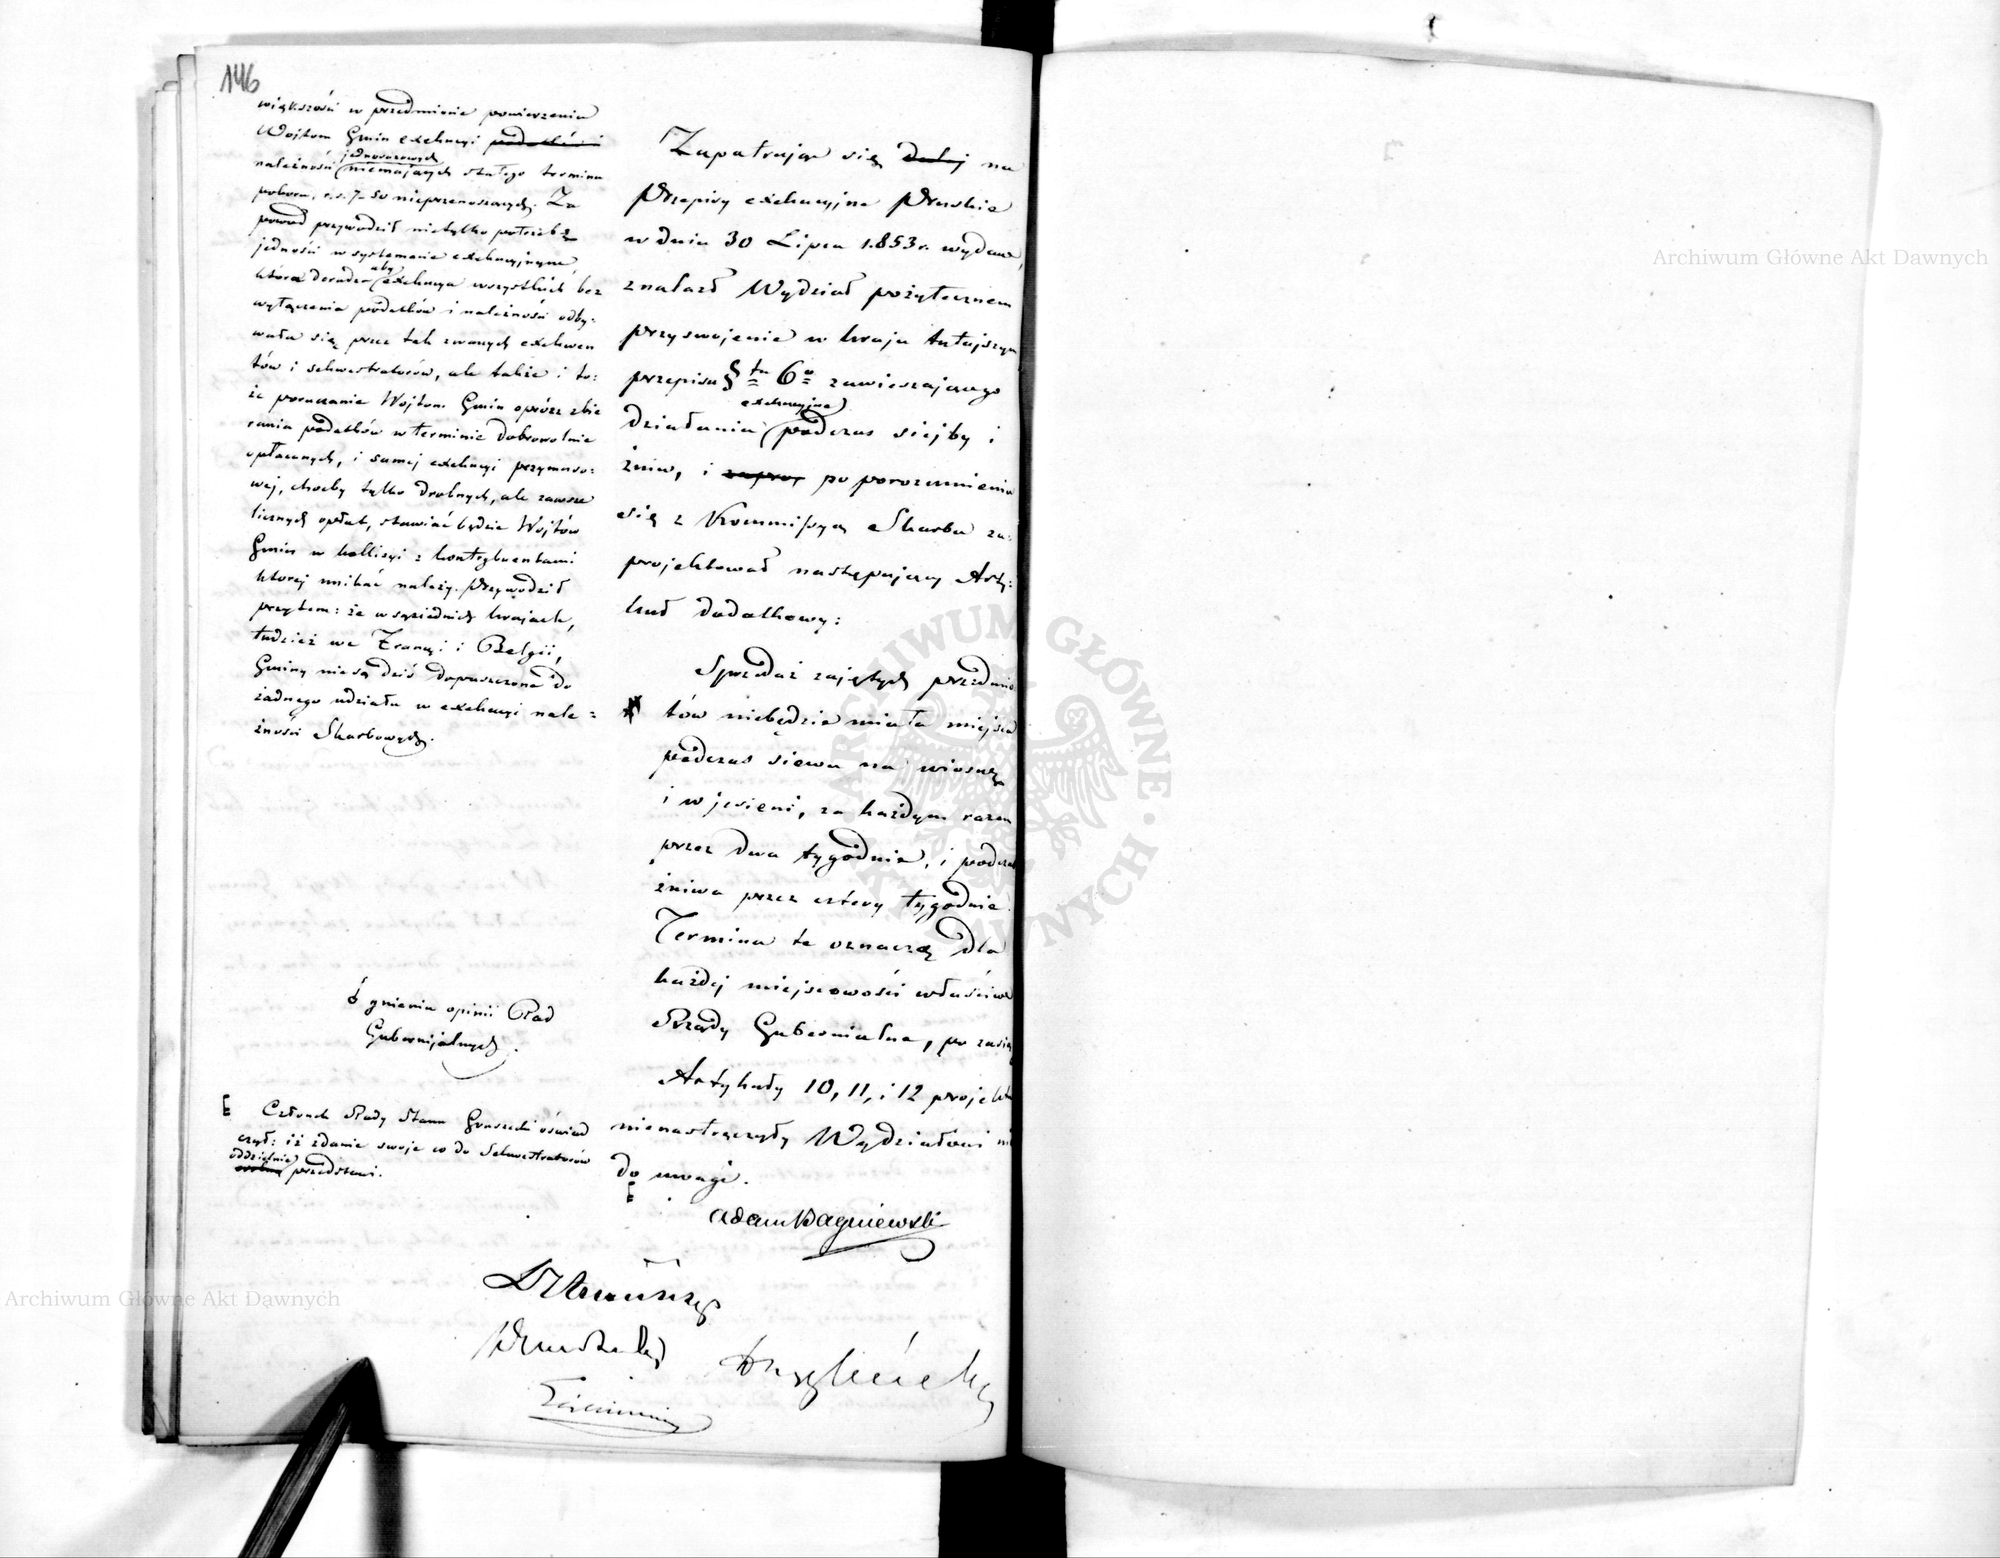 146
większość w przedmiocie powierzenia
Wójtom Gmin exekucyi podatków i
jednorazowych
należności niemających stałego terminu
poboru, r.s. 7-50 nieprzenoszących. Za
powód przywodził nietylko potrzebę
jedności w systemacie exekucyjnym,
aby
która doradza exekucya wszystkich bez
wyłączenia podatków i należności odby-
wała się przez tak zwanych exekuen
tów i sekwestratorów, ale także i to:
że poruczanie Wójtom Gmin oprócz zbie
rania podatków w terminie dobrowolnie
opłacanych, i samej exekucyi przymuso-
wej, choćby tylko drobnych, ale zawsze
licznych opłat, stawiać będzie Wójtów
Gmin w kollizyi z kontrybuentami
której unikać należy. Przywodził
przytem: że w sąsiednich krajach,
tudzież we Francyi i Belgii,
Gminy nie są dziś dopuszczone do
żadnego udziału w exekucyi nale=
żności Skarbowych.
gnieniu opinii Rad
Gubernijalnych.
Członek Rady Stanu Gruszecki oświad
czył: iż zdanie swoje co do Sekwestratorów
oddzielnie
przedstawi.
Zapatrując się dalej na
Przepisy exekucyjne Pruskie
w dniu 30 Lipca 1853 r. wydane,
znalazł Wydział pożytecznem
przyswojenie w kraju tutejszym
przepisu § tu 6o zawieszającego
exekucyjne
działania podczas siejby i
żniw, i zapro, po porozumieniu
się z Kommissyą Skarbu za-
projektował następujący Arty-
kuł dodatkowy:
Sprzedaż zajętych przedmio
tów niebędzie miała miejsca
podczas siewu na wiosnę
i w jesieni, za każdym razem
przez dwa tygodnie, i podczas
żniwa przez cztery tygodnie.
Termina te oznaczą dla
każdej miejscowości właściwe
Rządy Gubernialne, po zasię
Artykuły 10, 11, i 12 projektu
nienastręczyły Wydziałowi nic
do uwagi.
Adam Bagniewski
Archiwum Główne Akt Dawnych
Archiwum Główne Akt Dawnych
ARCHIWUM GŁÓWNE AKT DAWNYCH